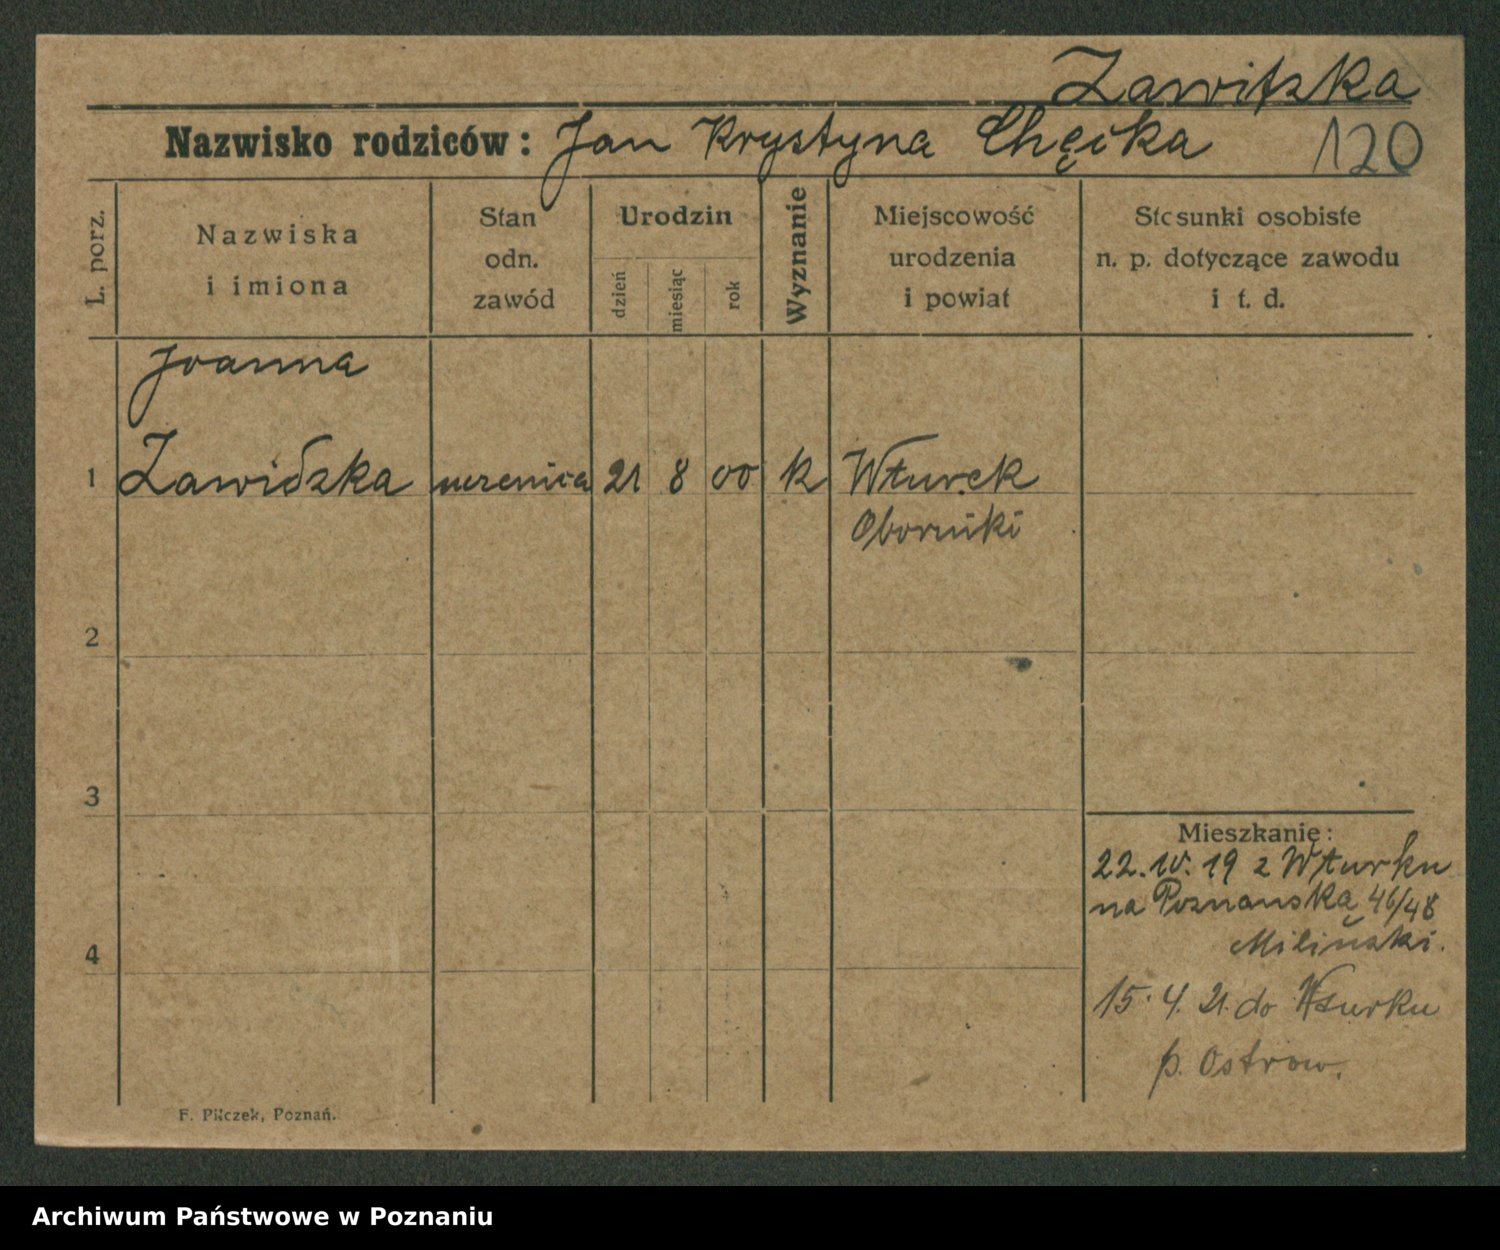 Zawitzka
Nazwisko rodziców: Jan Krystyna Chęcka 120
L. porz.
Nazwiska
i imiona
Stan
odn.
zawód
Urodzin
dzień
miesiąc
rok
Wyznanie
Miejscowość
urodzenia
i powiat
Stosunki osobiste
n. p. dotyczące zawodu
i t. d.
Joanna
1 Zawidzka uczenica 21 8 00 k Wturek
Oborniki
2
3
Mieszkanie:
22.10.19 z Wturku
na Poznanska 46/48
Miliński.
4
15.4.21. do Wturku
p. Ostrow.
F. Pilczek, Poznań.
Archiwum Państwowe w Poznaniu